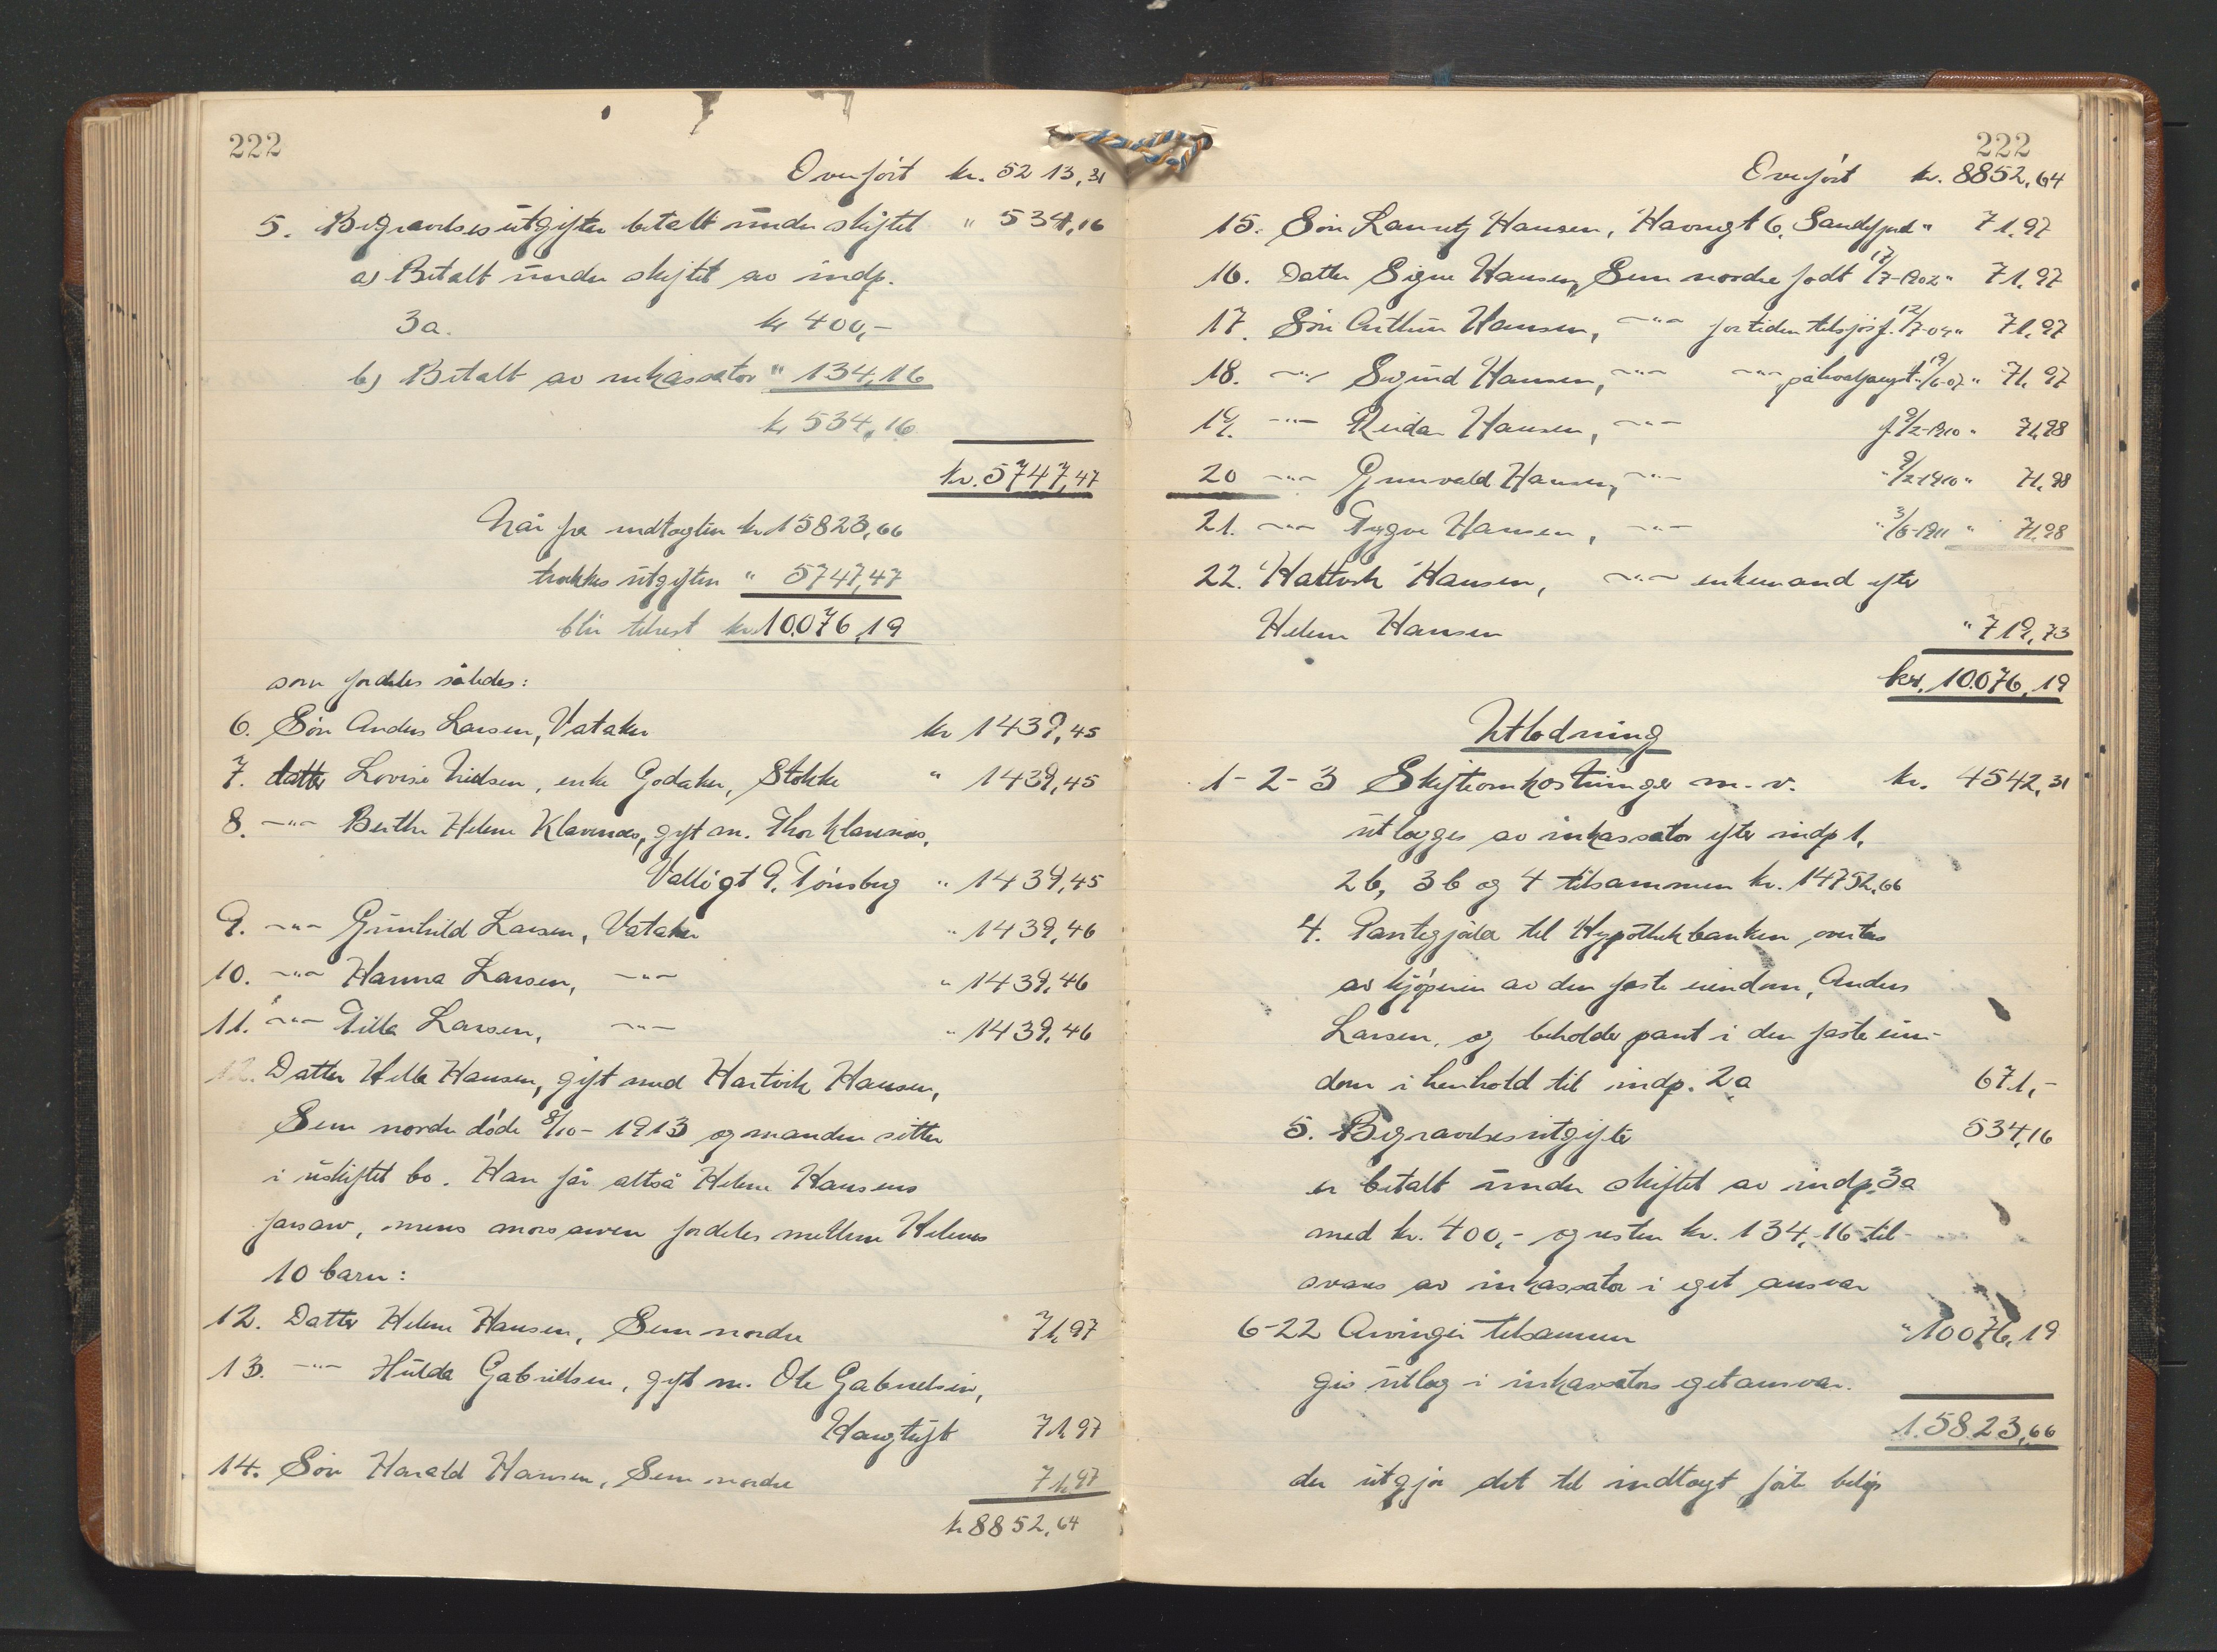 222
Overført kr. 5213,31
5. Begravelsesutgifter betalt under skiftet " 534,16
a) Betalt under skiftet av indp.
3a. kr 400,-
b) Betalt av inkassator " 134,16
kr 534,16
kr. 5747,47
Når fra indtægten kr 15823,66
trækkes utgiften " 5747,47
blir tilrest kr 10.076,19
som fordeles således:
6. Søn Anders Larsen, Vataker kr 1439,45
7. datter Lovise Nielsen, enke Godaker, Stokke " 1439,45
8. -"- Berthe Helene Klavenæs, gift m. Thor Klavenæs,
Vallögt 9. Tønsberg " 1439,45
9. -"- Gunhild Larsen, Vataker " 1439,46
10. -"- Hanna Larsen, -"- " 1439,46
11. -"- Tilla Larsen, -"- " 1439,46
12. Datter Helle Hansen, gift med Hartvik Hansen,
Sem nordre døde 8/10-1913 og manden sitter
i uskiftet bo. Han får altså Helene Hansens
farsarv, mens morsarven fordeles mellem Helenes
10 barn:
12. Datter Helene Hansen, Sem nordre 71,97
13. -"- Hulda Gabrielsen, gift m. Ole Gabrielsen,
Haugtuft 71,97
14. Søn Harald Hansen, Sem nordre 71,97
kr 8852,64
222
Overført kr. 8852,64
15. Søn Lauritz Hansen, Havnegt 6, Sandefjord " 71,97
16. Datter Signe Hansen, Sem nordre født 17/7-1902 " 71,97
17. Søn Arthur Hansen, -"- for tiden tilsjøs f. 12/7-04 " 71,97
18. -"- Sigurd Hansen, -"- -"- på hvalfangst " 19/6-07 " 71,97
19. -"- Reidar Hansen, -"- f. 9/2-1910 " 71,98
20 -"- Grunvald Hansen, -"- " 9/2-1910 " 71,98
21. -"- Trygve Hansen, -"- " 3/6-1911 " 71,98
22. Hartvik Hansen, -"- enkemand efter
Helene Hansen " 719,73
kr. 10.076,19
Utlodning
1-2-3 Skifteomkostninger m.v. kr. 4542,31
utlægges av inkassator efter indp 1,
2b, 3b og 4 tilsammen kr. 14752,66
4. Pantegjæld til Hypothekbanken overtas
av kjøperen av den faste eiendom, Anders
Larsen, og beholder pant i den faste eien-
dom i henhold til indp. 2a 671,-
5. Begravelsesutgifter 534,16
er betalt under skiftet av indp. 3a
med kr. 400,- og resten kr. 134,16 til-
svares av inkassator i eget ansvar
6-22 Arvinger tilsammen " 10076,19
gis utlæg i inkassators eget ansvar.
15823,66
der utgjør det til indtægt førte beløp